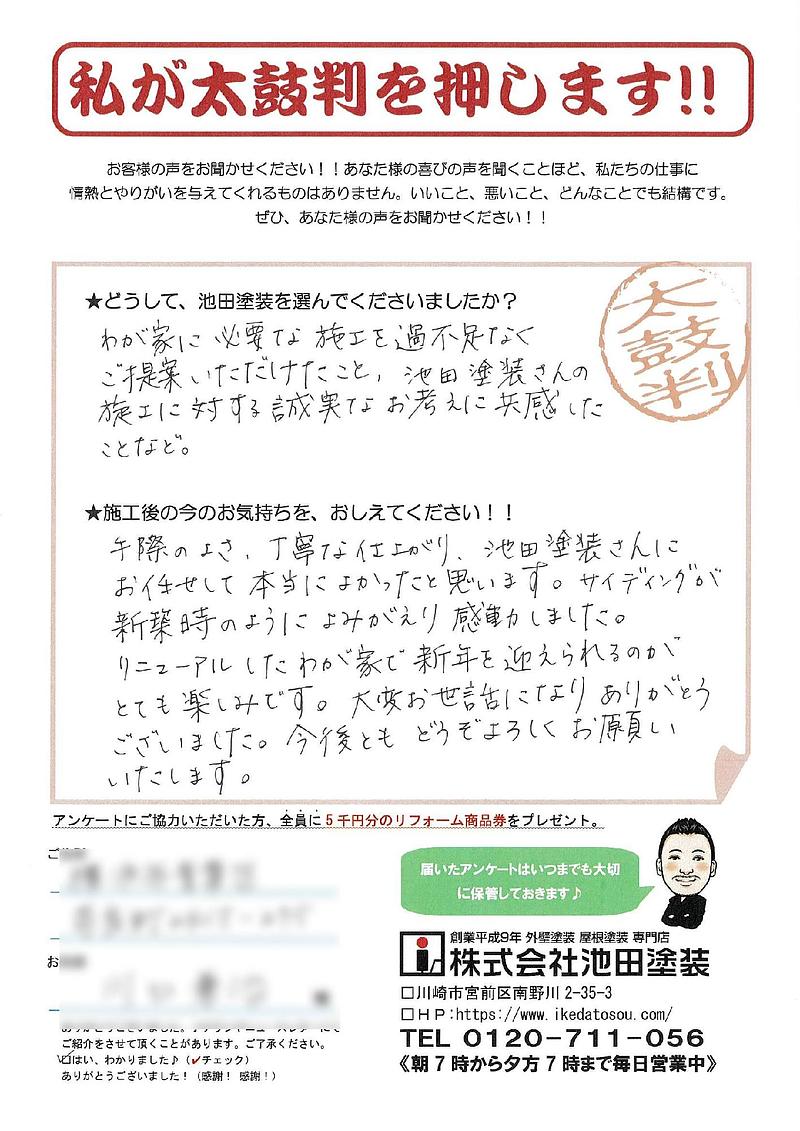 私が太鼓判を押します!!
お客様の声をお聞かせください！！あなた様の喜びの声を聞くことほど、私たちの仕事に
情熱とやりがいを与えてくれるものはありません。いいこと、悪いこと、どんなことでも結構です。
ぜひ、あなた様の声をお聞かせください！！
太鼓判
★どうして、池田塗装を選んでくださいましたか？
わが家に必要な施工を過不足なく
ご提案いただけたこと、池田塗装さんの
施工に対する誠実なお考えに共感した
ことなど。
★施工後の今のお気持ちを、おしえてください！！
手際のよさ、丁寧な仕上がり、池田塗装さんに
お任せして本当によかったと思います。サイディングが
新築時のようによみがえり感動しました。
リニューアルしたわが家で新年を迎えられるのが
とても楽しみです。大変お世話になりありがとう
ございました。今後ともどうぞよろしくお願い
いたします。
アンケートにご協力いただいた方、全員に5千円分のリフォーム商品券をプレゼント。
届いたアンケートはいつまでも大切
に保管しておきます♪
創業平成9年 外壁塗装 屋根塗装 専門店
株式会社池田塗装
□川崎市宮前区南野川 2-35-3
□ＨＰ:https://www.ikedatosou.com/
TEL 0120-711-056
《朝7時から夕方7時まで毎日営業中》
ご紹介をさせて頂くことがあります。ご了承ください。
☑はい、わかりました♪（✓チェック）
ありがとうございました！（感謝！感謝！）